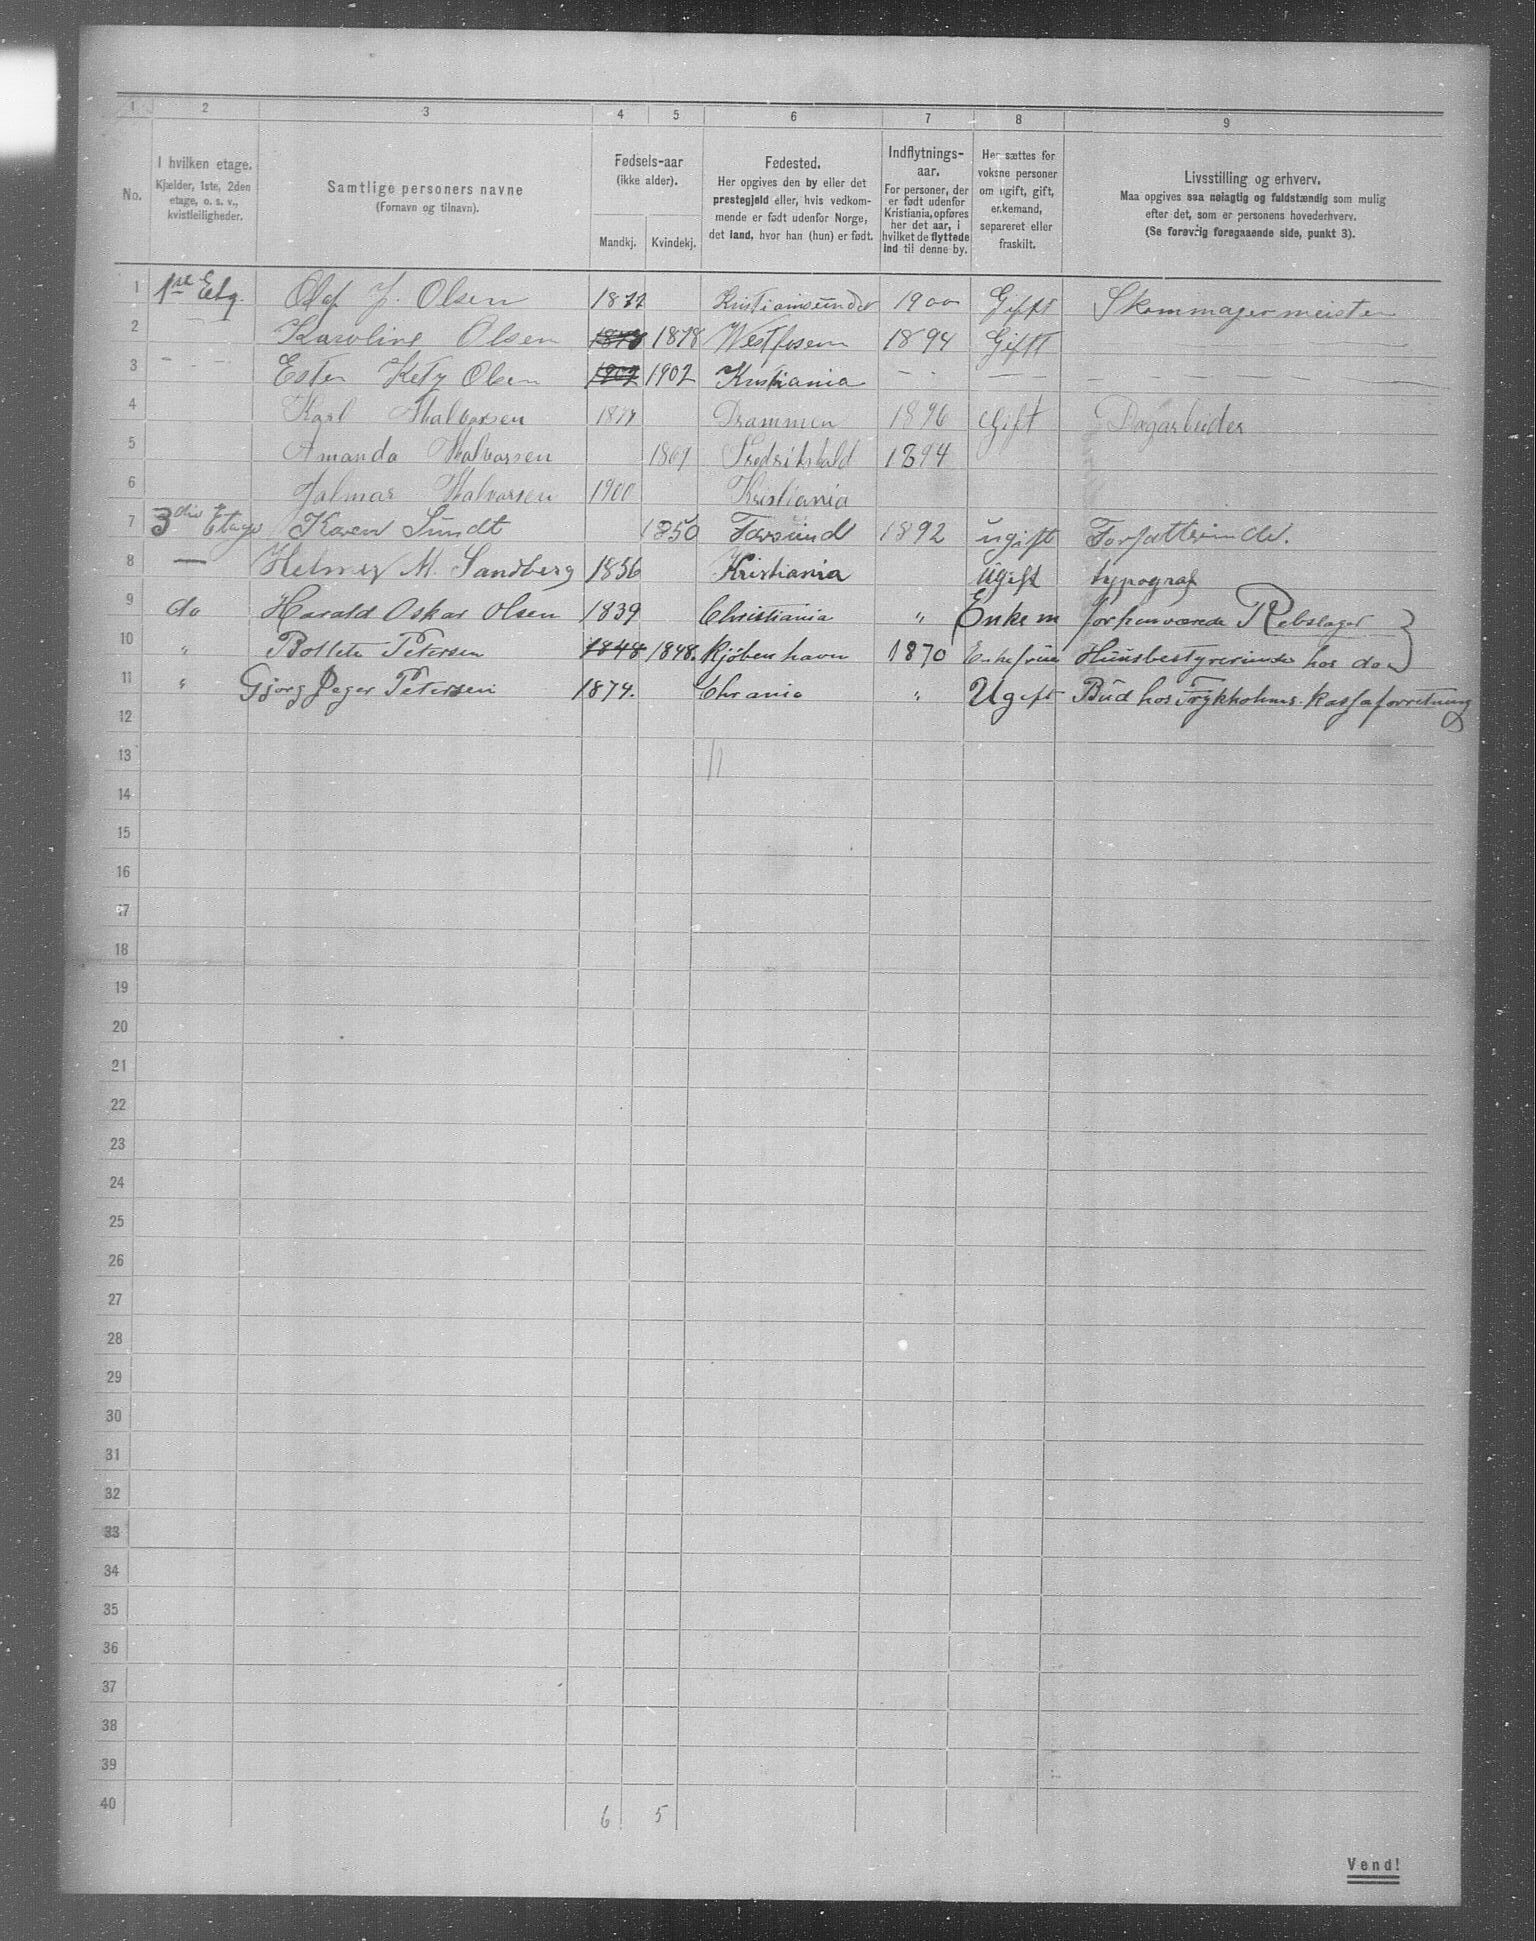 1 2 3 4 5 6 7 8 9
No. I hvilken etage. Kjælder, 1ste, 2den etage, o. s. v., kvistleiligheder. Samtlige personers navne (Fornavn og tilnavn). Fødsels-aar (ikke alder). Mandkj. Kvindekj. Fødested. Her opgives den by eller det prestegjeld eller, hvis vedkommende er født udenfor Norge, det land, hvor han (hun) er født. Indflytnings-aar. For personer, der er født udenfor Kristiania, opføres her det aar, i hvilket de flyttede ind til denne by. Her sættes for voksne personer om ugift, gift, enkemand, separeret eller fraskilt. Livsstilling og erhverv. Maa opgives saa nøiagtig og fuldstændig som mulig efter det, som er personens hovederhverv. (Se forøvrig foregaaende side, punkt 3).
1 1ste Etg. Olaf J. Olsen 1877 Kristianssund 1900 Gift Skommagermeister
2 — Karoline Olsen 1878 1878 Westfosem 1894 Gift
3 - - Ester Kety Olsen 1902 1902 Kristiania - - — —
4 Karl Halvorsen Drammen 1896 Gift Dagarbeider
5 Amanda Halvorsen Fredrikshald 1894
6 Hjalmar Halvorsen 1900 Kristiania
7 3die Etage Karen Sundt 1850 Farsund 1892 ugift Forfatterinde.
8 — Helmer M. Sandberg 1856 Kristiania Ugift typograf
9 do Harald Oskar Olsen 1839 Christiania " Enkem forhenværede Rebslager
10 " Bollete Petersen 1848 1848. Kjøbenhavn 1870 Enkefrue Huusbestyrerinde hos do
11 " Gjørg Peger Petersen 1874. Chrania " Ugift Bud hos Trykholms. Kaffeforretning
12
13
14
15
16
17
18
19
20
21
22
23
24
25
26
27
28
29
30
31
32
33
34
35
36
37
38
39
40 6 5
Vend!